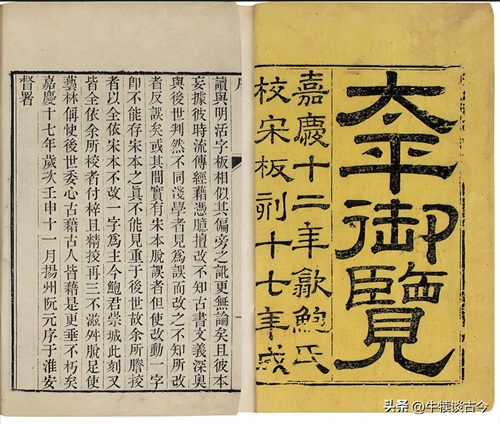 太平御覽
嘉慶十二年歙鮑氏
校宋板刻十七年成
讀與明活字板相似其偏旁之訛更無論矣且彼本
妄據彼時流傳經籍憑臆擅改不知古書文義深奧
與後世判然不同淺學者見爲誤而改之不知所改
者反誤矣或其間實有宋本脫誤者但使改動一字
即不能存宋本之真不能見重于後世故余所謄挍
者以全依宋本不改一字爲主今鮑君崇城此刻又
皆全依余所挍者付梓且精挍再三不滋舛脫足使
藝林稱快後世委心古籍古人皆藉是更垂不朽矣
嘉慶十七年歲次壬申十一月揚州阮元序于淮安
督署
头条 @牛犊谈古今